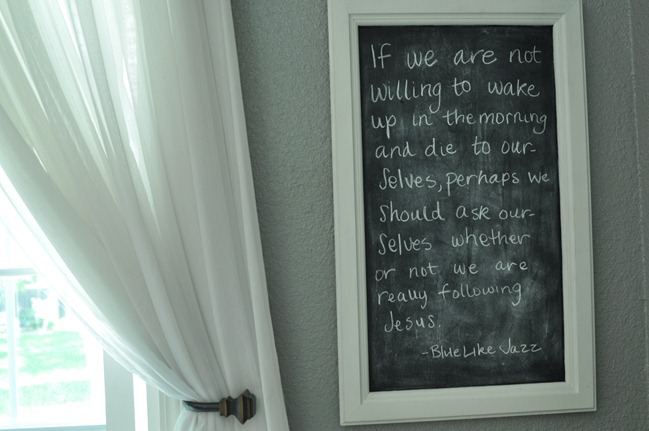 If we are not
willing to wake
up in the morning
and die to our-
selves, perhaps we
should ask our-
selves whether
or not we are
really following
Jesus.
-Blue Like Jazz